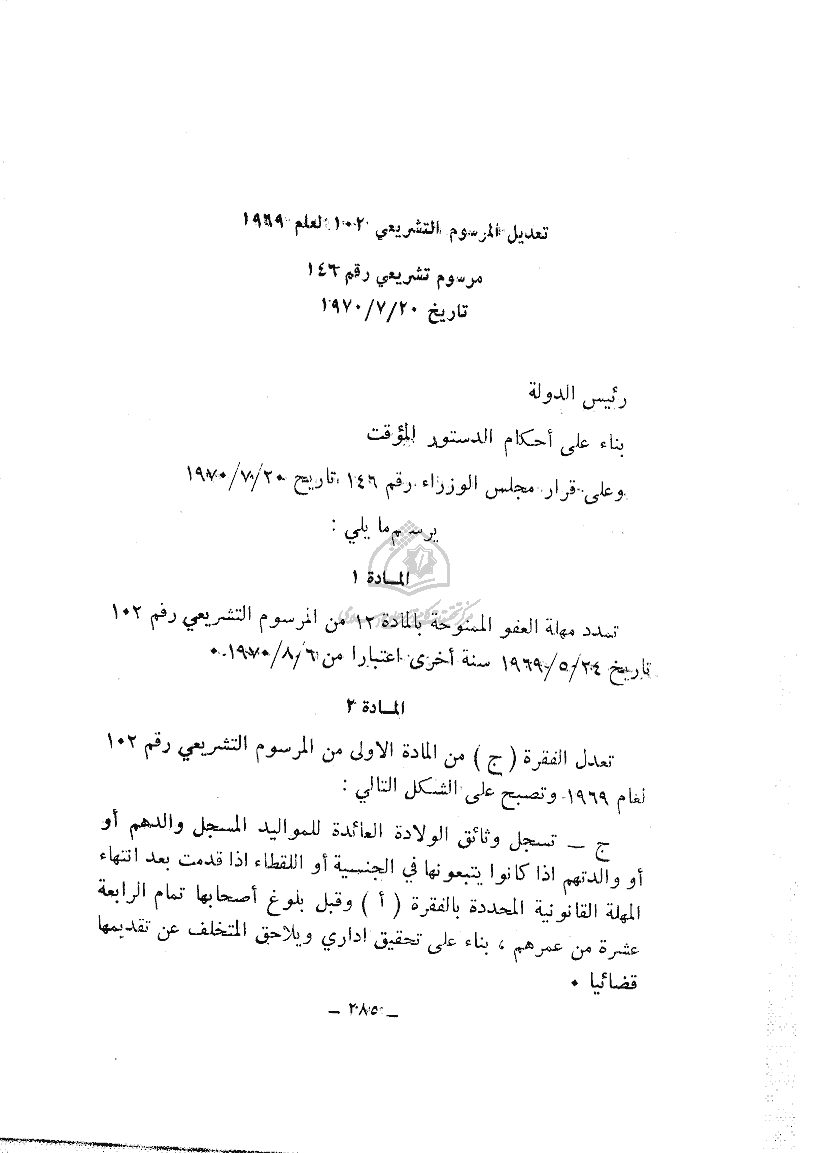 تعديل المرسوم التشريعي ١٠٢ لعام ١٩٦٩
مرسوم تشريعي رقم ١٤٦
تاريخ ١٩٧٠/٧/٢٠
رئيس الدولة
بناء على أحكام الدستور المؤقت
وعلى قرار مجلس الوزراء رقم ١٤٦ تاريخ ١٩٧٠/٧/٢٠
يرسم ما يلي :
المادة ١
تمدد مهلة العفو الممنوحة بالمادة ١٢ من المرسوم التشريعي رقم ١٠٢
تاريخ ١٩٦٩/٥/٢٤ سنة أخرى اعتبارا من ١٩٧٠/٨/٦ ٠
المادة ٢
تعدل الفقرة ( ج ) من المادة الاولى من المرسوم التشريعي رقم ١٠٢
لعام ١٩٦٩ وتصبح على الشكل التالي :
ج ــ تسجل وثائق الولادة العائدة للمواليد المسجل والدهم أو
أو والدتهم اذا كانوا يتبعونها في الجنسية أو اللقطاء اذا قدمت بعد انتهاء
المهلة القانونية المحددة بالفقرة ( أ ) وقبل بلوغ أصحابها تمام الرابعة
عشرة من عمرهم ، بناء على تحقيق اداري ويلاحق المتخلف عن تقديمها
قضائيا ٠
ــ ٢٨٥ ــ